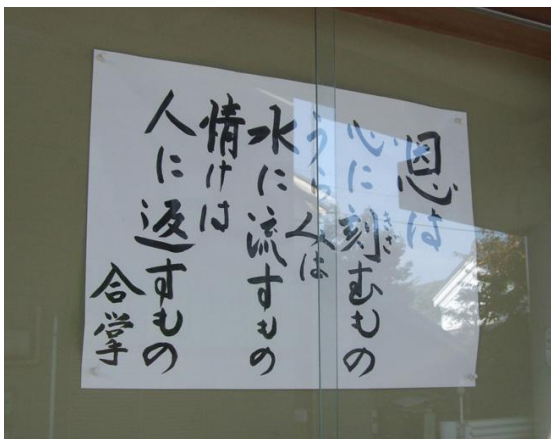 恩は
きざ
心に刻むもの
うらみは
水に流すもの
情けは
人に返すもの
合掌